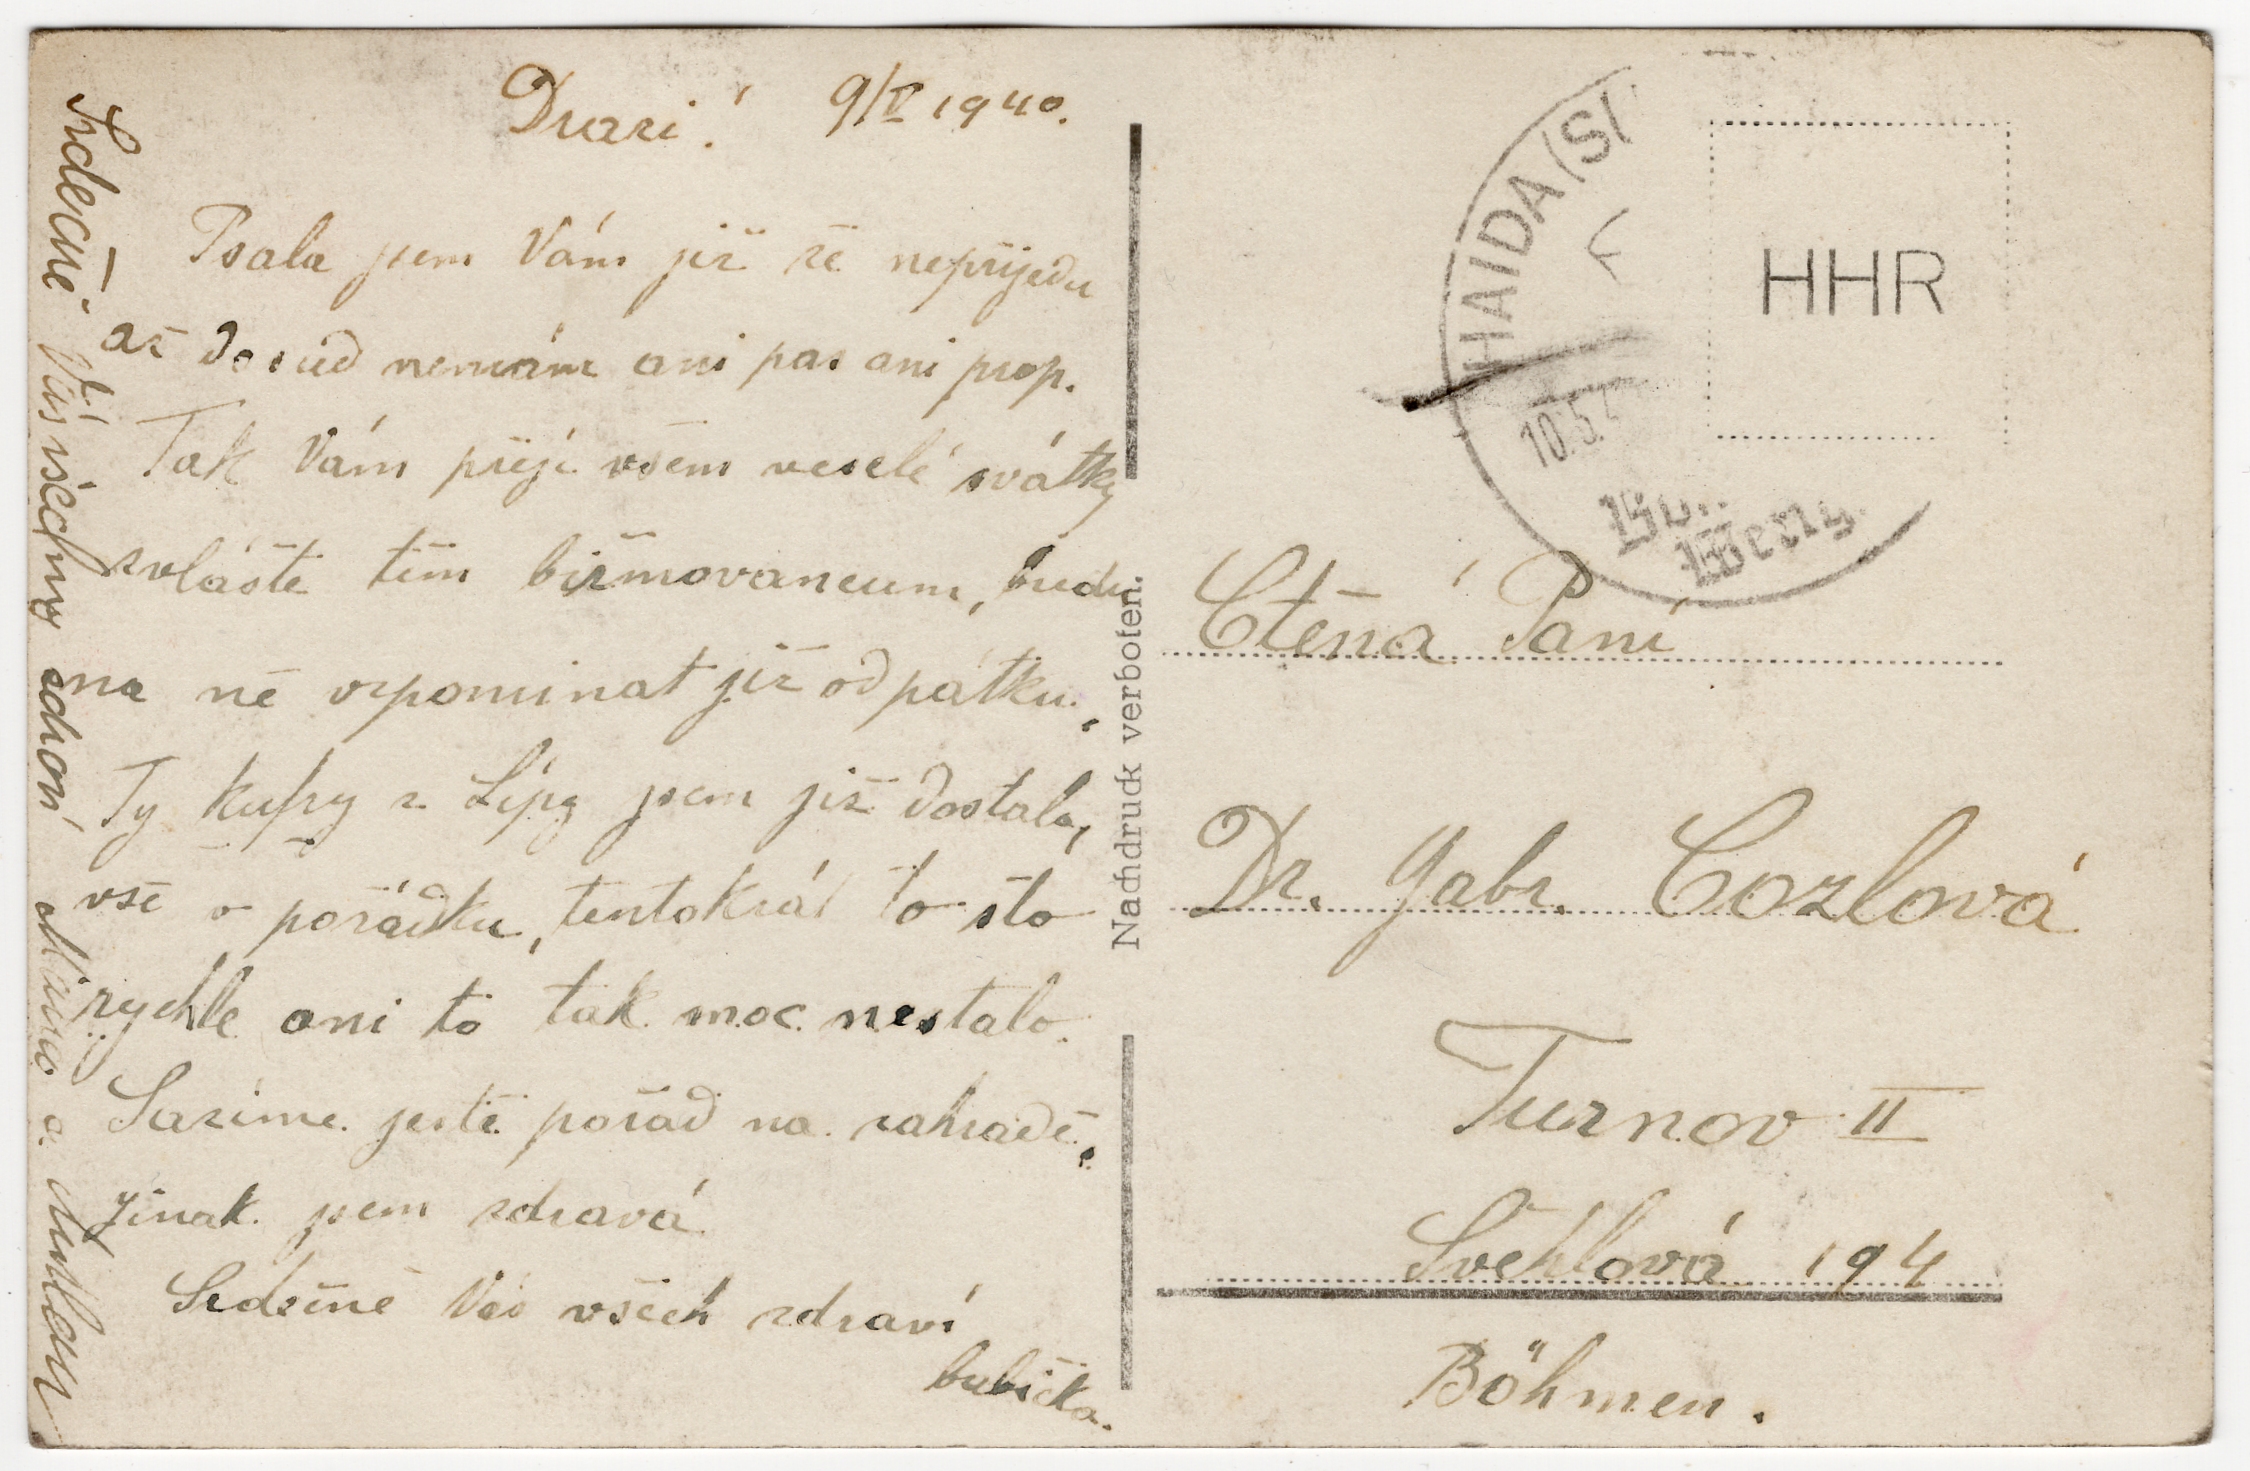 Drazí! 9/V 1940.
Psala jsem Vám již že nepřijedu
až dosud nemám ani pas ani prop.
Tak Vám přeji všem veselé svátky
zvláště těm biřmovancum, budu
na ně vzpominat již od pátku,
Ty kufry z Lípy jsem již dostala,
vše v pořádku, tentokrát to šlo
rychle ani to tak moc nestálo.
Sázíme ještě pořád na zahradě,
Jinak jsem zdravá
Srdečně Vás všech zdraví
babička.
Srdečně Vás všechny zdraví a
Nachdruck verboten.
HAIDA (S
10.5.
HHR
Ctěná Paní
Dr. Gabr. Cozlová
Turnov II
Švehlová 194
Böhmen.